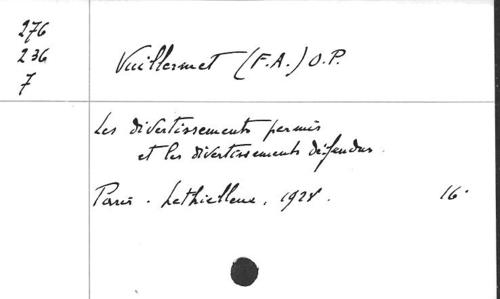 276
236
7
Vuillermet (F.A.) O.P.
Les divertissements permis
et les divertissements défendus.
Paris - Lethielleux, 1924. 16°